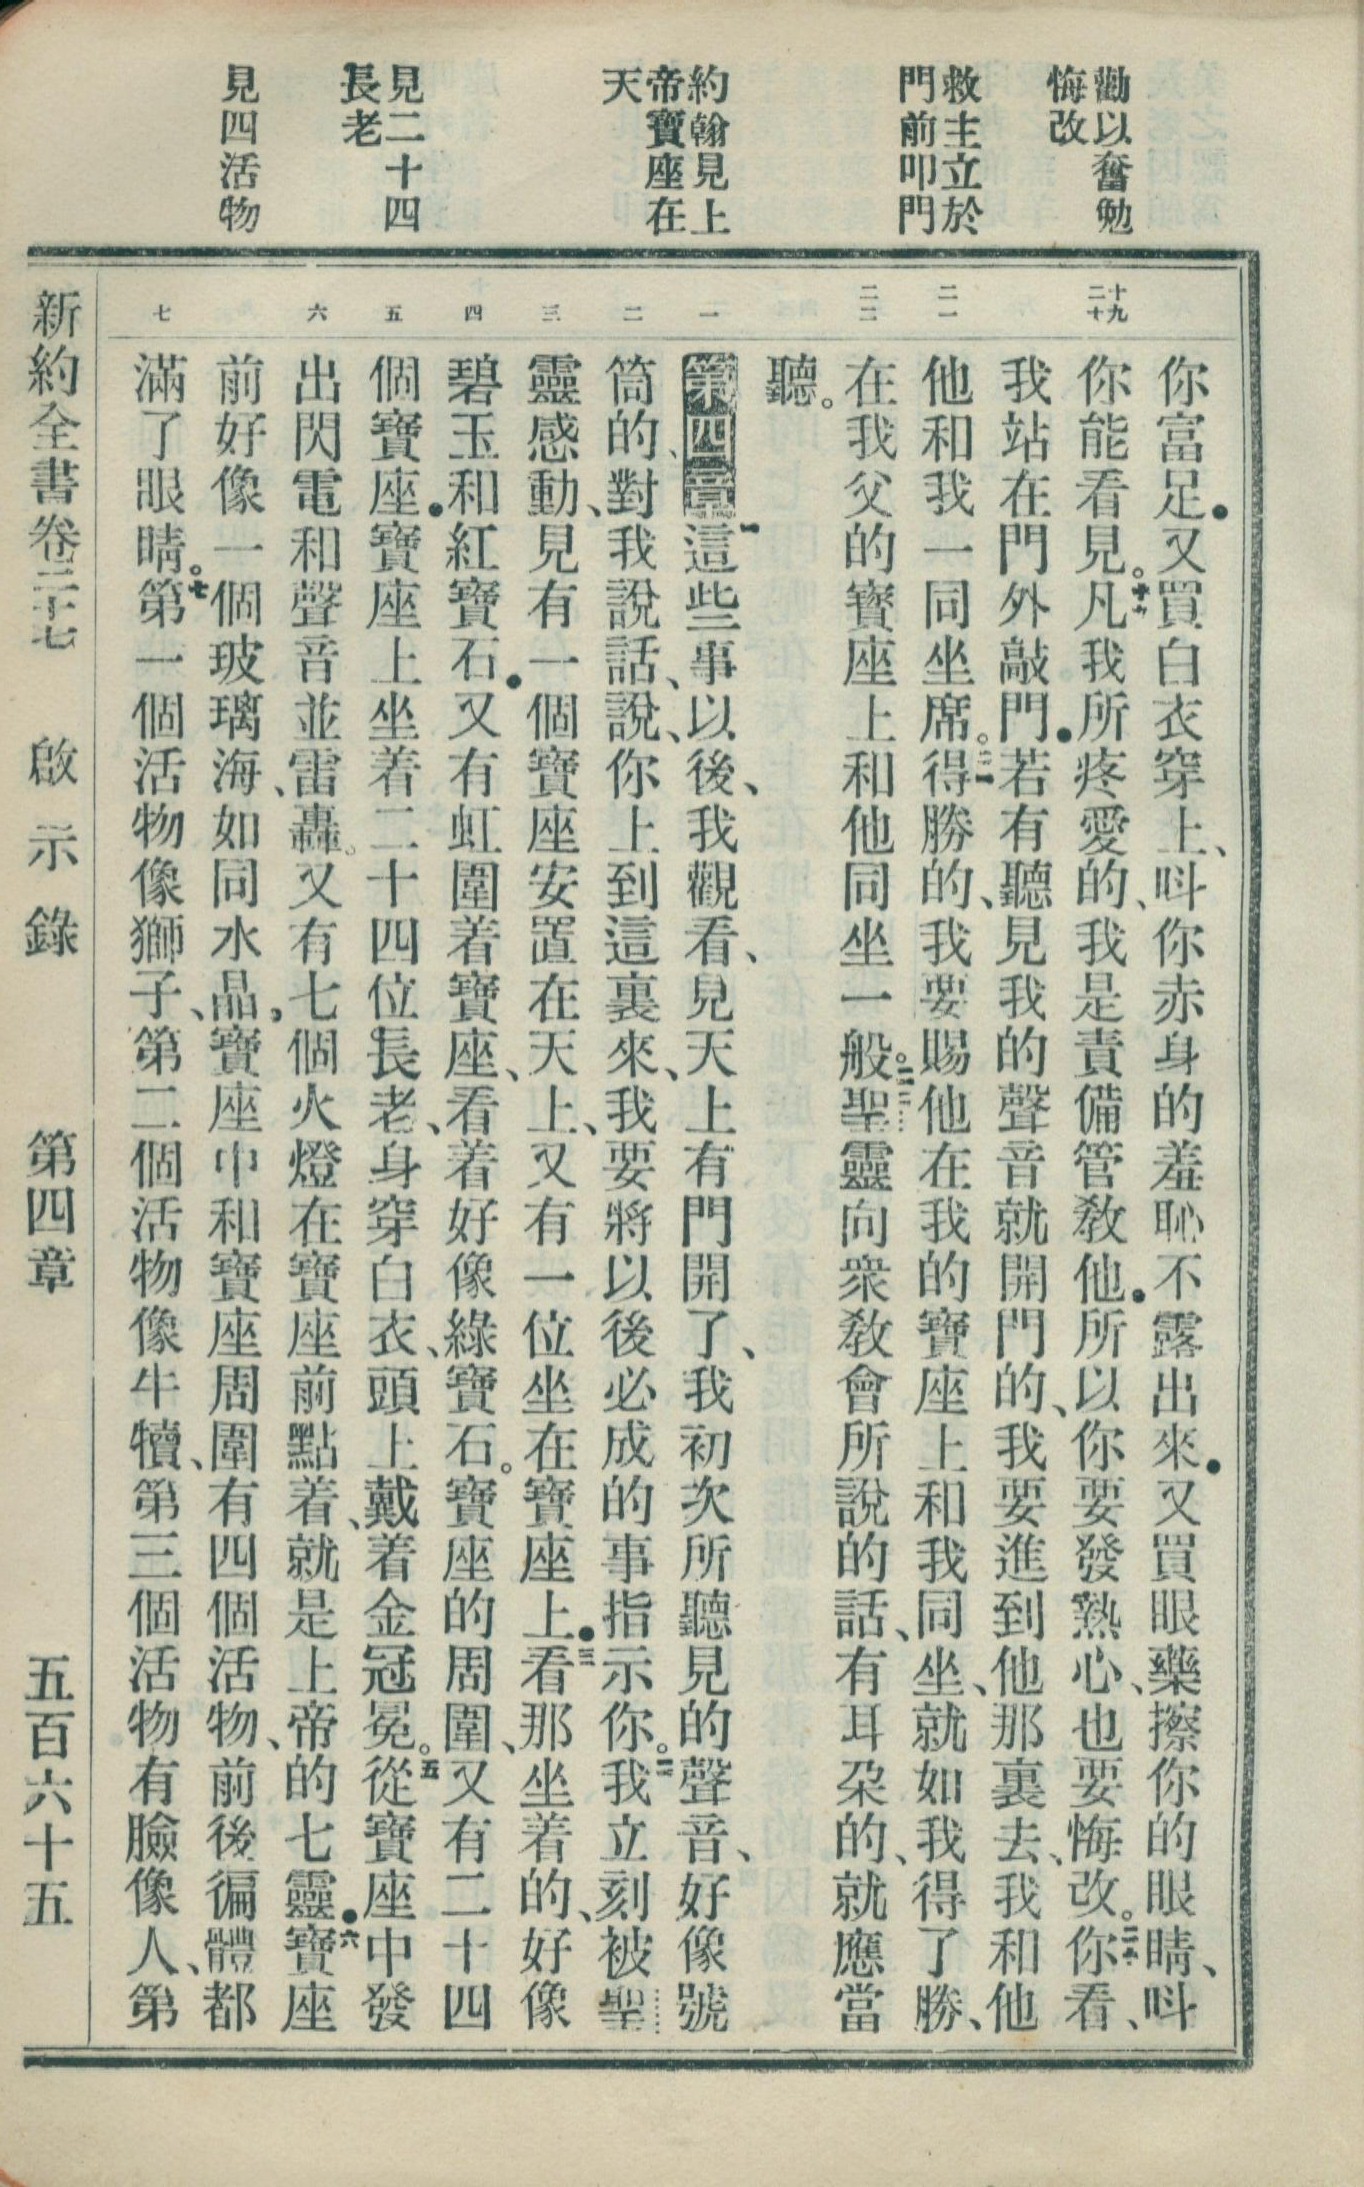 勸以奮勉
悔改
救主立於
門前叩門
約翰見上
帝寶座在
天
見二十四
長老
見四活物
十九
二十
二一
二二
一
二
三
四
五
六
七
你富足●又買白衣穿上、呌你赤身的羞恥不露出來●又買眼藥擦你的眼睛、呌
你能看見。十九凡我所疼愛的、我是責備管教他●所以你要發熱心、也要悔改。二十你看、
我站在門外敲門●若有聽見我的聲音就開門的、我要進到他那裏去、我和他
他和我一同坐席。二一得勝的、我要賜他在我的寶座上和我同坐、就如我得了勝、
在我父的寶座上和他同坐一般。二二聖靈向衆教會所說的話、有耳朶的、就應當
聽。
第四章一這些事以後、我觀看、見天上有門開了、我初次所聽見的聲音、好像號
筒的、對我說話、說、你上到這裏來、我要將以後必成的事指示你。二我立刻被聖
靈感動、見有一個寶座安置在天上、又有一位坐在寶座上●三看那坐着的、好像
碧玉和紅寶石●又有虹圍着寶座、看着好像綠寶石。寶座的周圍、又有二十四
個寶座●寶座上坐着二十四位長老、身穿白衣、頭上戴着金冠冕。五從寶座中發
出閃電和聲音並雷轟。又有七個火燈在寶座前點着、就是上帝的七靈●六寶座
前好像一個玻璃海、如同水晶●寶座中和寶座周圍有四個活物、前後徧體都
滿了眼睛。七第一個活物像獅子、第二個活物像牛犢、第三個活物有臉像人、第
新約全書卷二十七　啟示錄　第四章　五百六十五